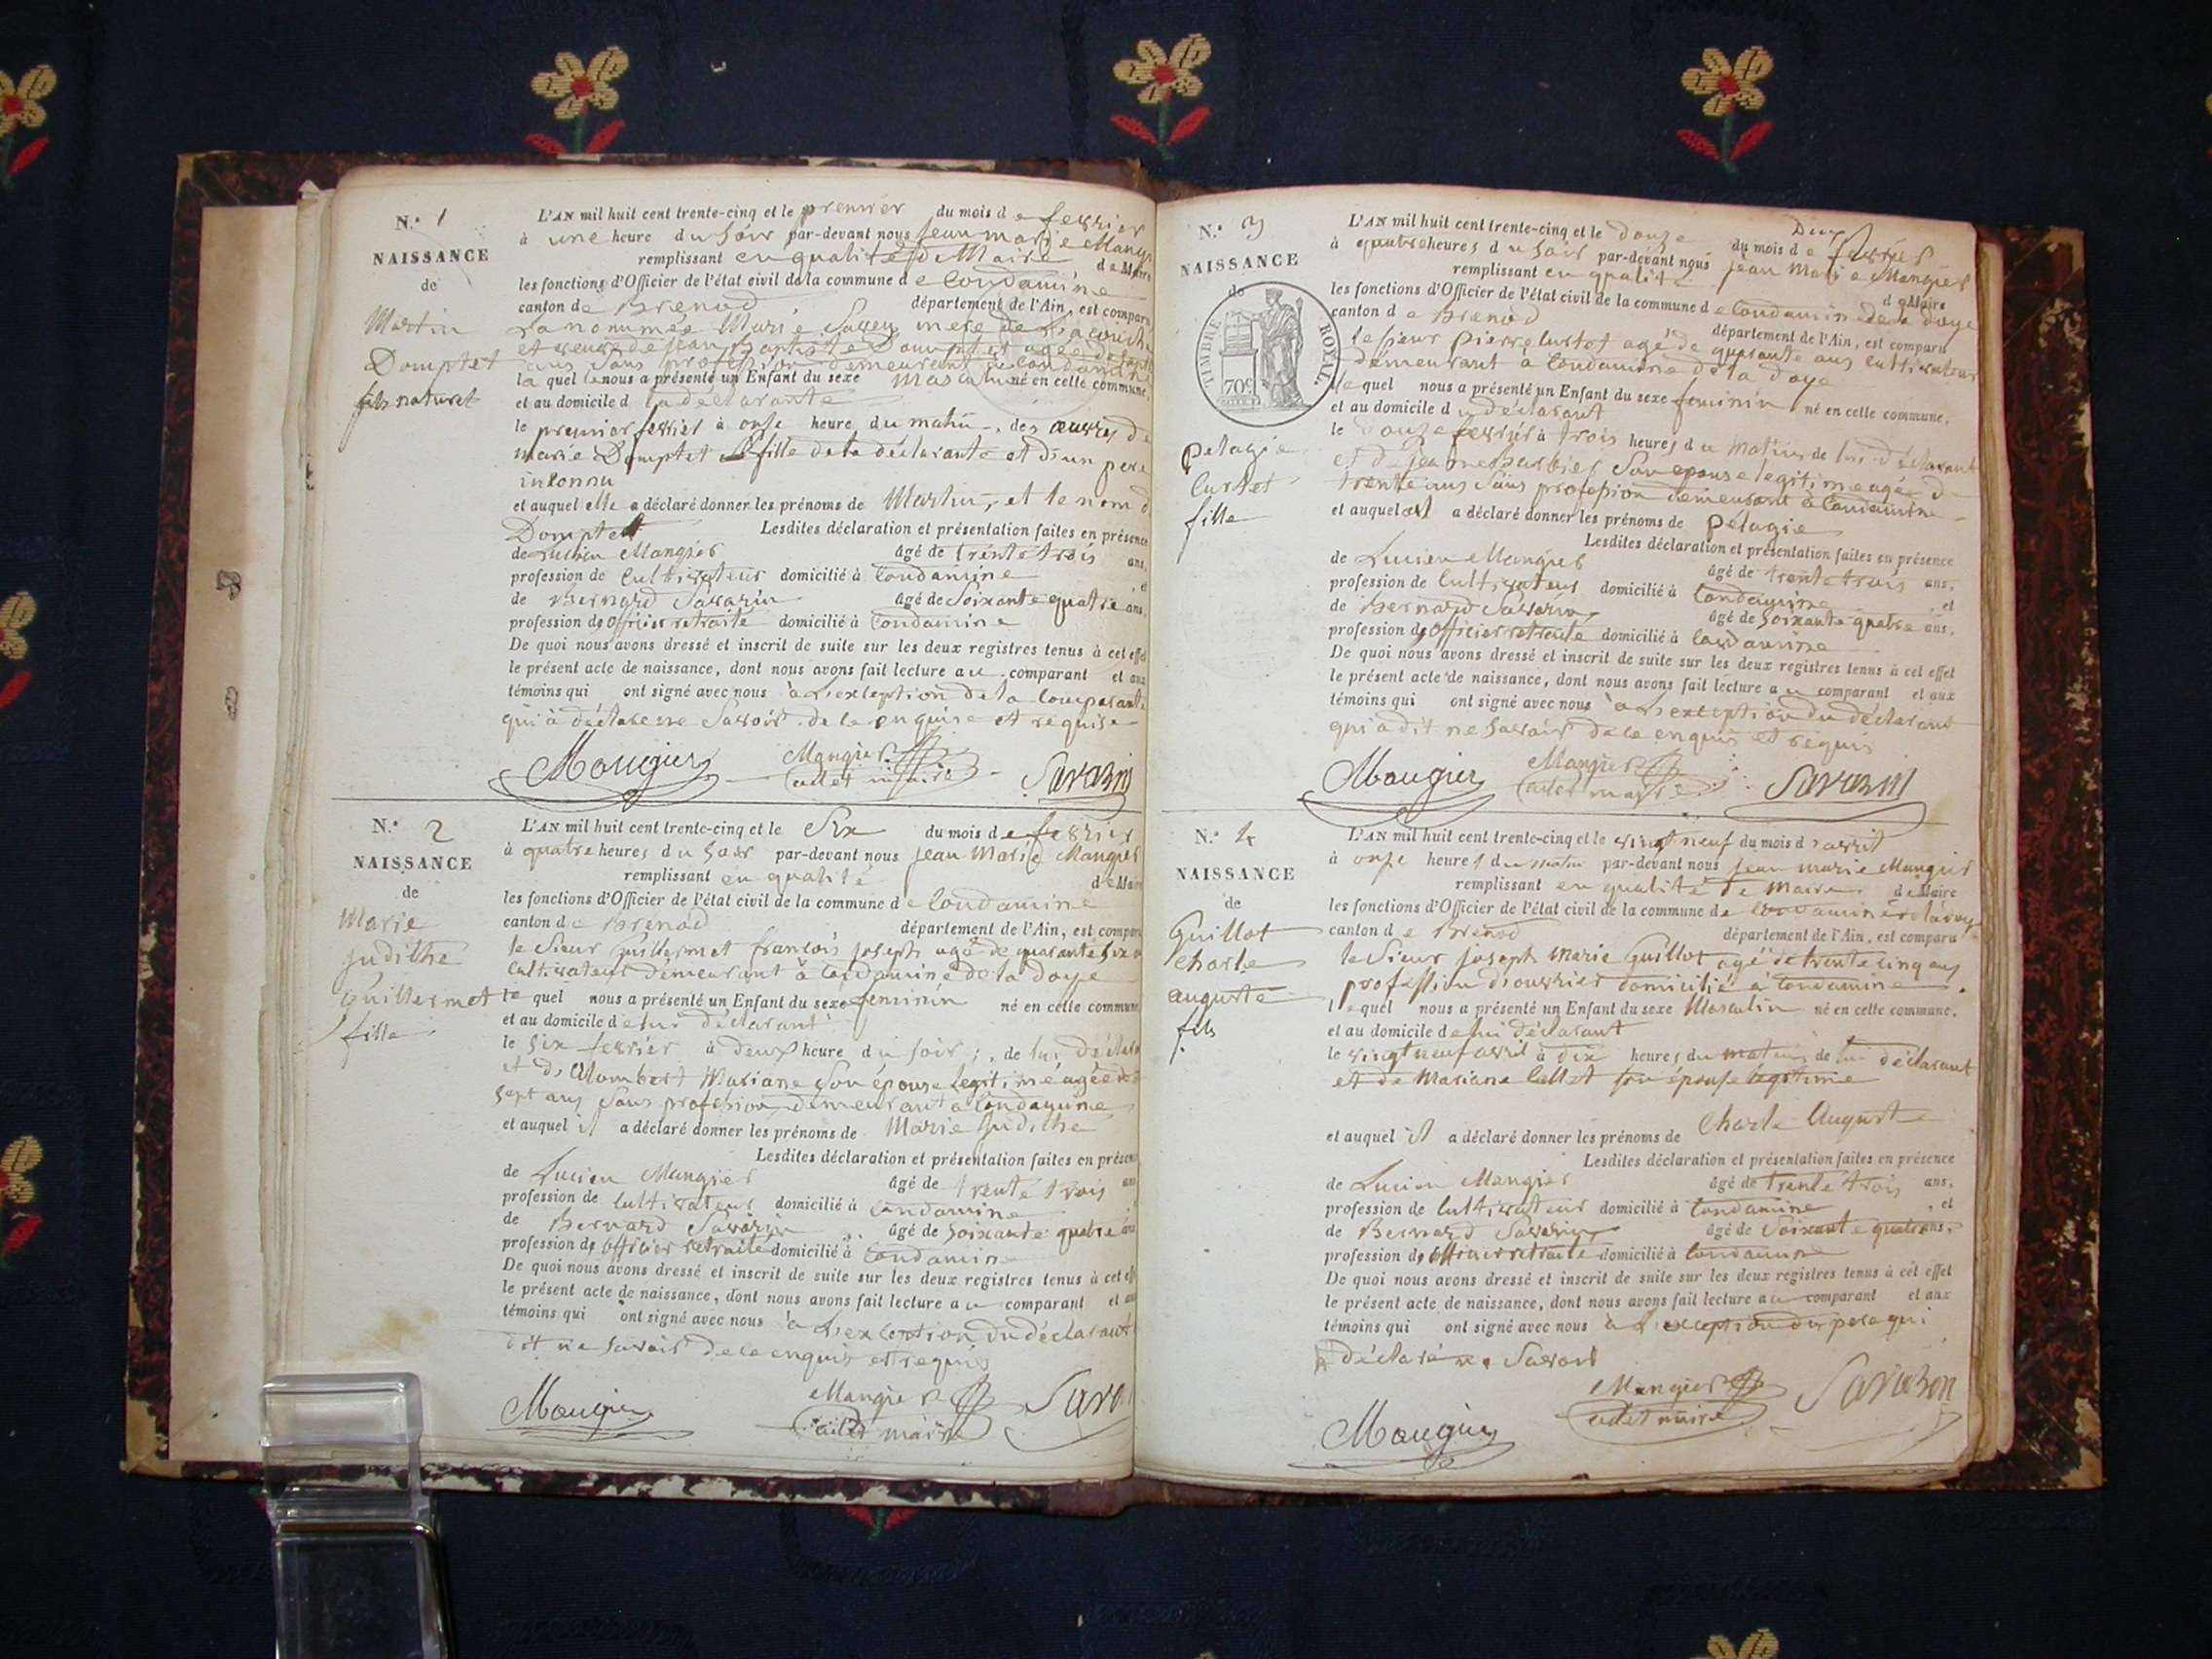 N.° 1
NAISSANCE
de
Martin
Domptet
fils naturel
L'AN mil huit cent trente-cinq et le premier du mois de fevrier
à une heure du soir par-devant nous jean marie Mangi
remplissant en qualité de Maire de Maire
les fonctions d'Officier de l'état civil de la commune de Condamine
canton de Brenod département de l'Ain, est comparu
La nommée Marie mere de
et veuve de jean Baptiste Domptet agée de
ans sans profession demeurant à Condamine
la quel le nous a présenté un Enfant du sexe masculin né en cette commune,
et au domicile d la declarante
le premier fevrier à onse heure du matin, des œuvres de
marie Domptet fille de la déclarante et d'un pere
inconnu
et auquel elle a déclaré donner les prénoms de Martin, et le nom d
Domptet Lesdites déclaration et présentation faites en présence
de Lucien Mangier âgé de trente trois ans,
profession de cultivateur domicilié à Condamine et
de Bernard Savarin âgé de soixante quatre ans,
profession de officier retraite domicilié à Condamine
De quoi nous avons dressé et inscrit de suite sur les deux registres tenus à cet effet
le présent acte de naissance, dont nous avons fait lecture au comparant et aux
témoins qui ont signé avec nous à l'exception de la comparante
qui à déclaré ne savoir de ce enquise et requise
Mougier Mangier cadet maire Savarin
N.° 2
NAISSANCE
de
Marie
judithe
Guillermet
fille
L'AN mil huit cent trente-cinq et le Six du mois de fevrier
à quatre heures du soir par-devant nous jean Marie Mangier
remplissant en qualité de Maire
les fonctions d'Officier de l'état civil de la commune de Condamine
canton de Brenod département de l'Ain, est comparu
le sieur guillermet françois joseph agé de quarante six
cultivateur demeurant à Condamine de la doye
le quel nous a présenté un Enfant du sexe feminin né en cette commune
et au domicile de lui déclarant
le six fevrier à deux heure du soir, de lui déclarant
et d Alombert Mariane son épouse legitime agée de
sept ans sans profession demeurant a Condamine
et auquel il a déclaré donner les prénoms de Marie judithe
Lesdites déclaration et présentation faites en présence
de Lucien Mangier âgé de trente trois ans
profession de cultivateur domicilié à Condamine
de Bernard Savarin âgé de soixante quatre ans
profession de officier retraite domicilié à Condamine
De quoi nous avons dressé et inscrit de suite sur les deux registres tenus à cet effet
le présent acte de naissance, dont nous avons fait lecture au comparant et aux
témoins qui ont signé avec nous à l'exception du déclarant
dit ne savoir de ce enquis et requis
Mougier Mangier cadet maire Sava
N.° 3
NAISSANCE
de
TIMBRE ROYAL
70c
pelagie
Curtet
fille
L'AN mil huit cent trente-cinq et le douze du mois de fevrier
à quatre heures du soir par-devant nous jean Marie Mangier
remplissant en qualité de Maire
les fonctions d'Officier de l'état civil de la commune de Condamine de la doye
canton de Brenod département de l'Ain, est comparu
le sieur pierre Curtet agé de quarante ans cultivateur
demeurant à Condamine de la doye
le quel nous a présenté un Enfant du sexe feminin né en cette commune,
et au domicile du déclarant
le douze fevrier à trois heures du matin de lui déclarant
et de jeanne Barbier son epouse legitime agée d
trente ans sans profession demeurant à Condamine
et auquel il a déclaré donner les prénoms de pélagie
Lesdites déclaration et présentation faites en présence
de Lucien Mangier âgé de trente trois ans,
profession de cultivateur domicilié à Condamine, et
de Bernard Savarin âgé de soixante quatre ans,
profession de officier retraite domicilié à Condamine
De quoi nous avons dressé et inscrit de suite sur les deux registres tenus à cet effet
le présent acte de naissance, dont nous avons fait lecture au comparant et aux
témoins qui ont signé avec nous à l'exception du déclarant
qui a dit ne savoir de ce enquis et requis
Mougier Mangier cadet maire Savarin
N.° 4
NAISSANCE
de
Guillot
Charle
auguste
fils
L'AN mil huit cent trente-cinq et le vingt neuf du mois d avril
à onze heures du matin par-devant nous jean marie Mangier
remplissant en qualité de maire de Maire
les fonctions d'Officier de l'état civil de la commune de Condamine de la doye
canton de Brenod département de l'Ain, est comparu
le Sieur joseph Marie Guillot agé de trente cinq ans
profession d'ouvrier domicilié à Condamine
lequel nous a présenté un Enfant du sexe Masculin né en cette commune,
et au domicile de lui déclarant
le vingt neuf avril à dix heures du matin, de lui déclarant
et de Mariane Collet son épouse legitime
et auquel il a déclaré donner les prénoms de Charle Auguste
Lesdites déclaration et présentation faites en présence
de Lucien Mangier âgé de trente trois ans,
profession de cultivateur domicilié à Condamine, et
de Bernard Savarin âgé de soixante quatre ans,
profession de officier retraite domicilié à Condamine
De quoi nous avons dressé et inscrit de suite sur les deux registres tenus à cet effet
le présent acte de naissance, dont nous avons fait lecture au comparant et aux
témoins qui ont signé avec nous à l'exception du pere qui
a déclaré ne savoir
Mougier Mangier cadet maire Savarin